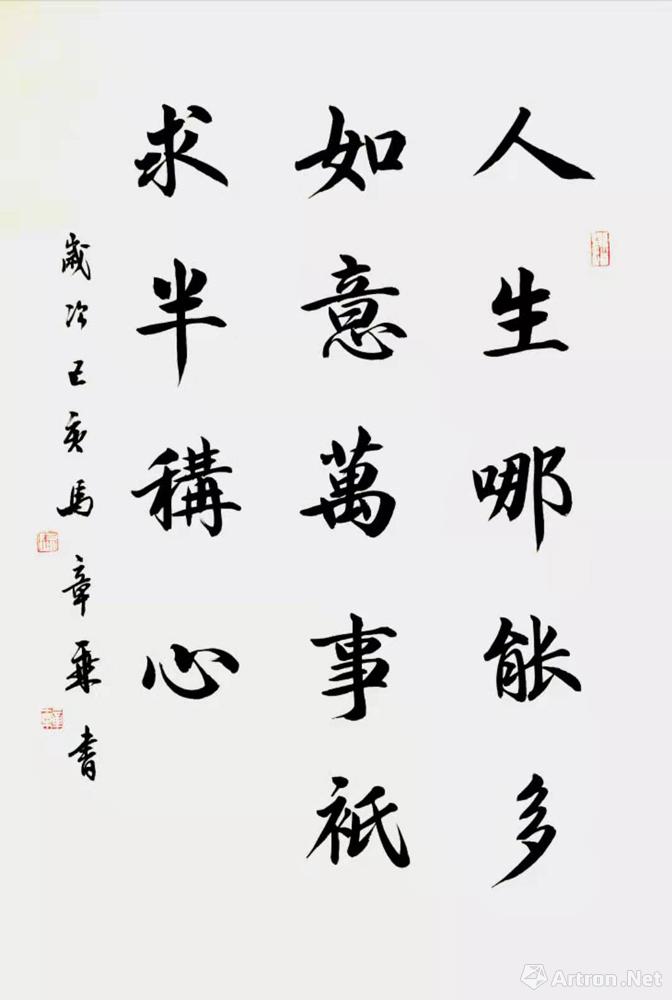 人生哪能多
如意萬事祇
求半稱心
歲次己亥馬章乘書
Artron.Net